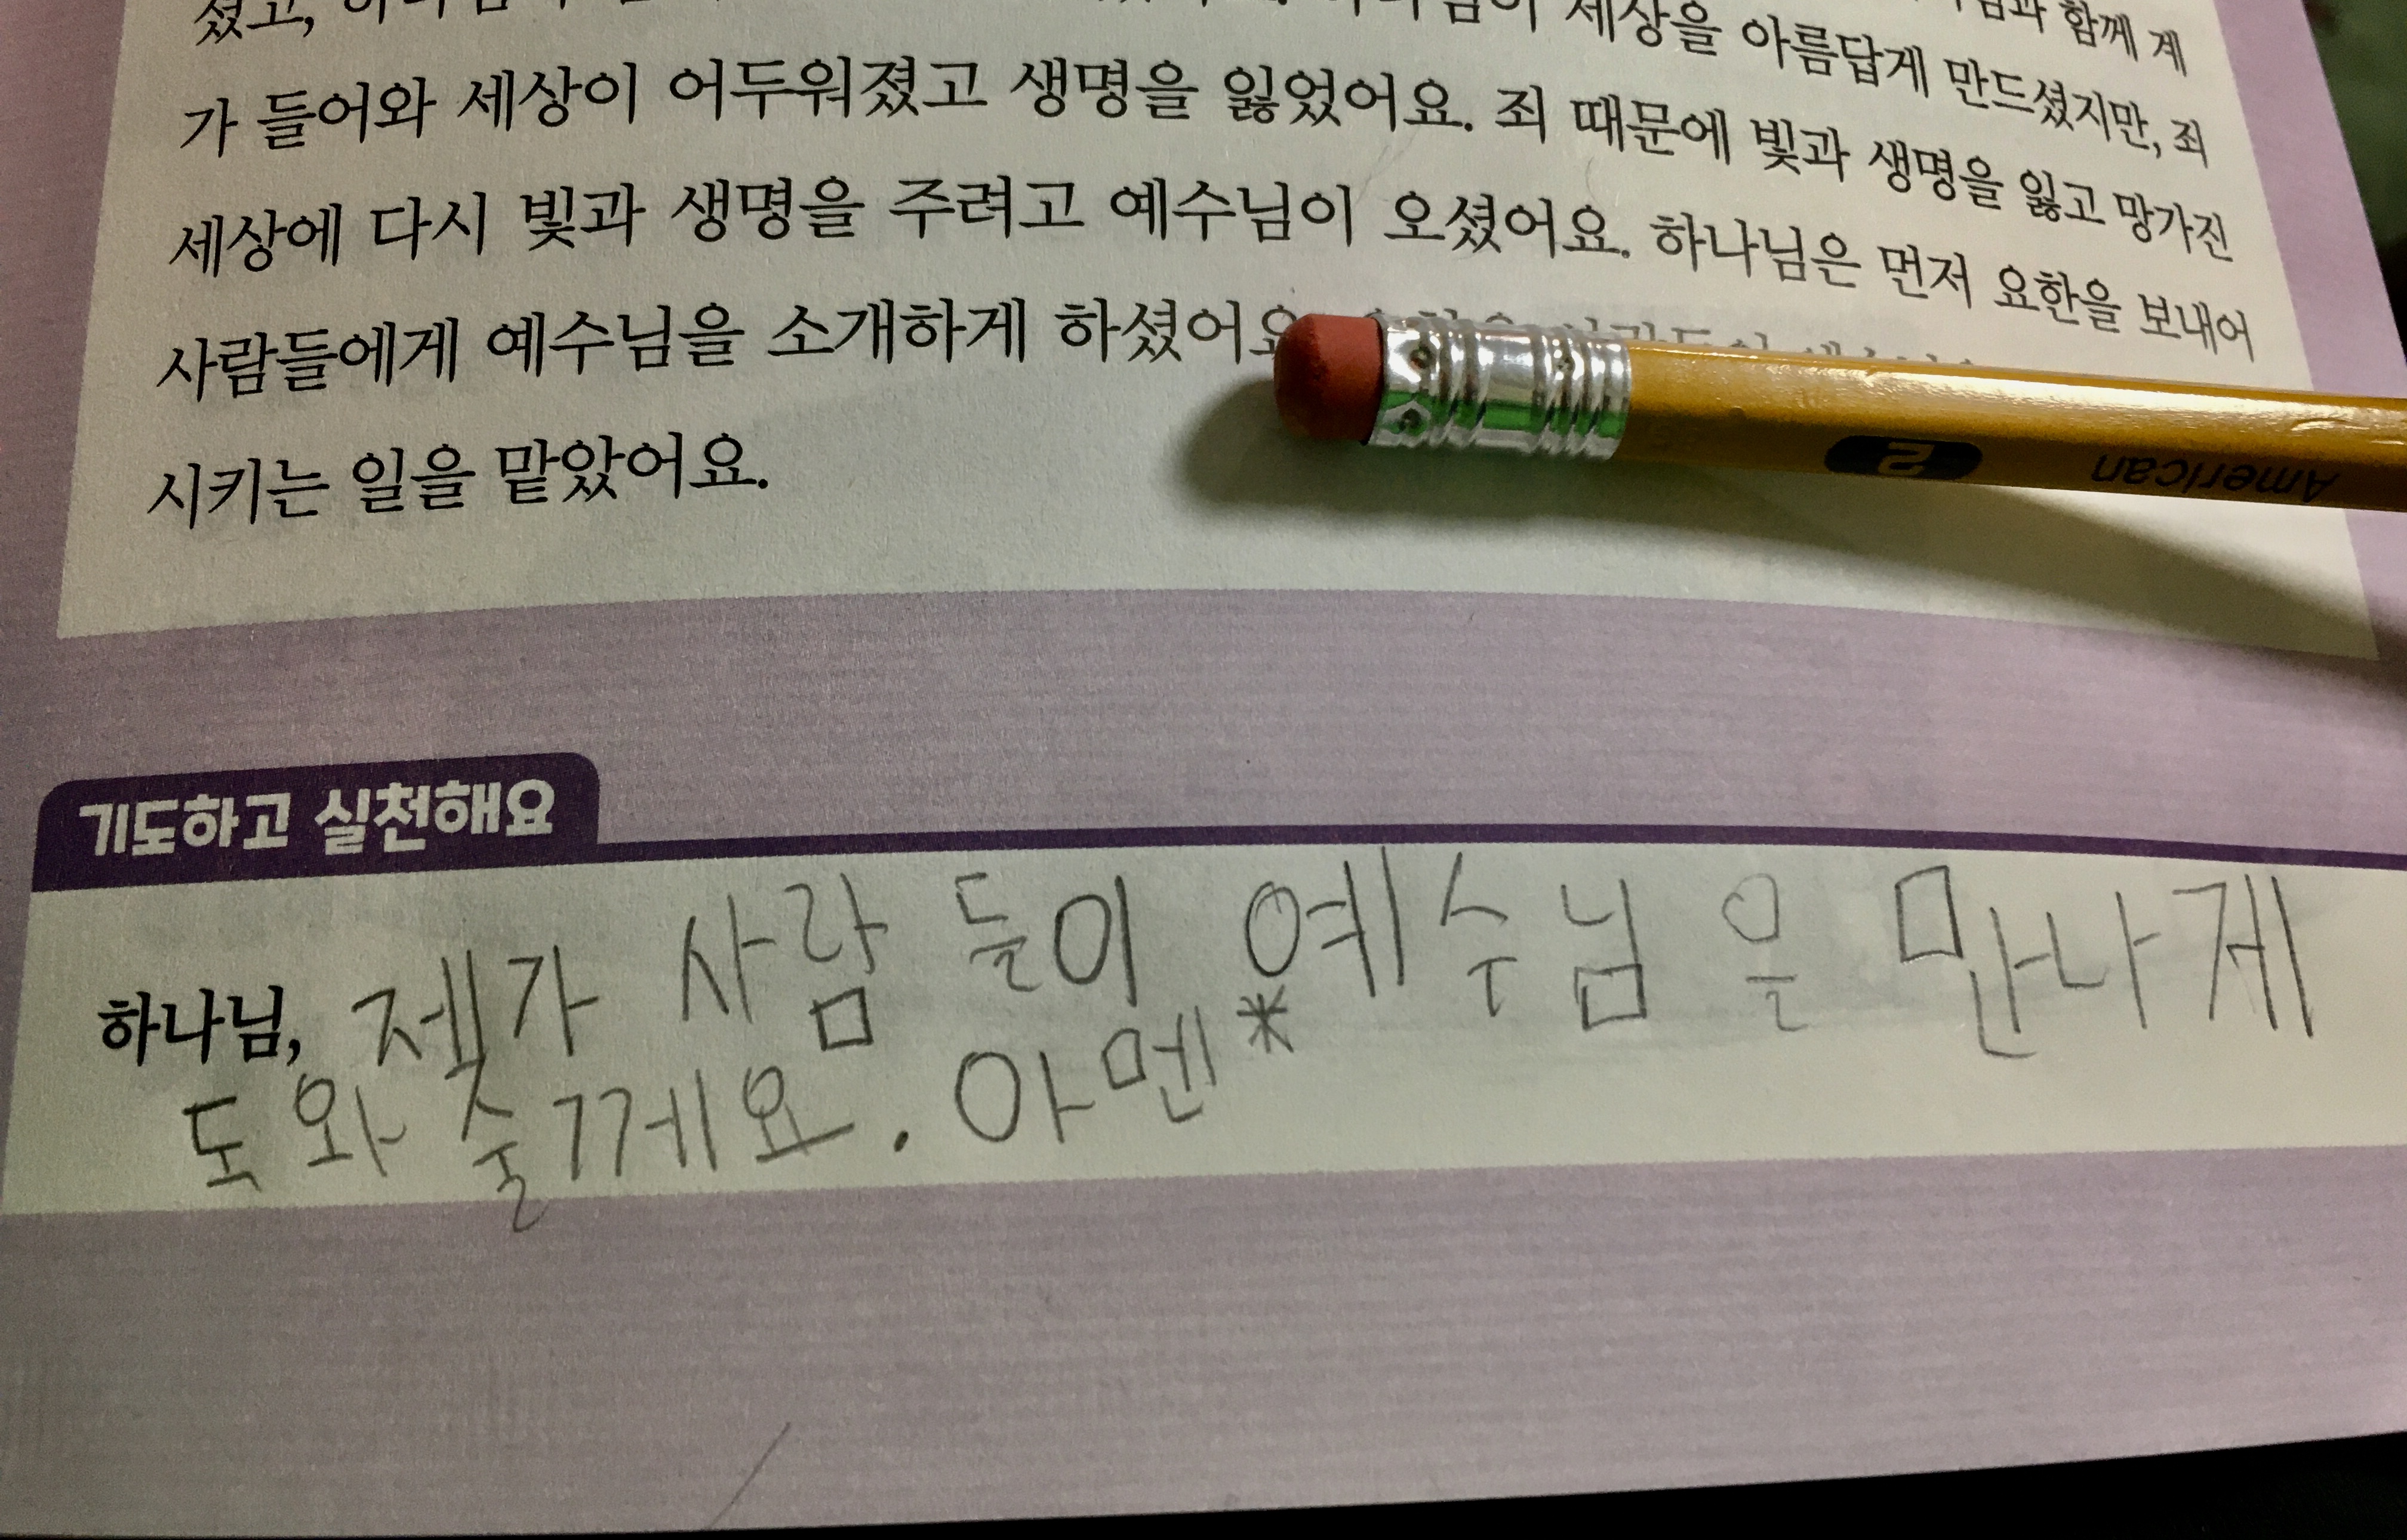 함께 계
셨고, 하나님이 세상을 아름답게 만드셨지만, 죄
가 들어와 세상이 어두워졌고 생명을 잃었어요. 죄 때문에 빛과 생명을 잃고 망가진
세상에 다시 빛과 생명을 주려고 예수님이 오셨어요. 하나님은 먼저 요한을 보내어
사람들에게 예수님을 소개하게 하셨어요
시키는 일을 맡았어요.
2
American
기도하고 실천해요
하나님, 제가 사람들이 예수님을 만나게
도와줄께요. 아멘*